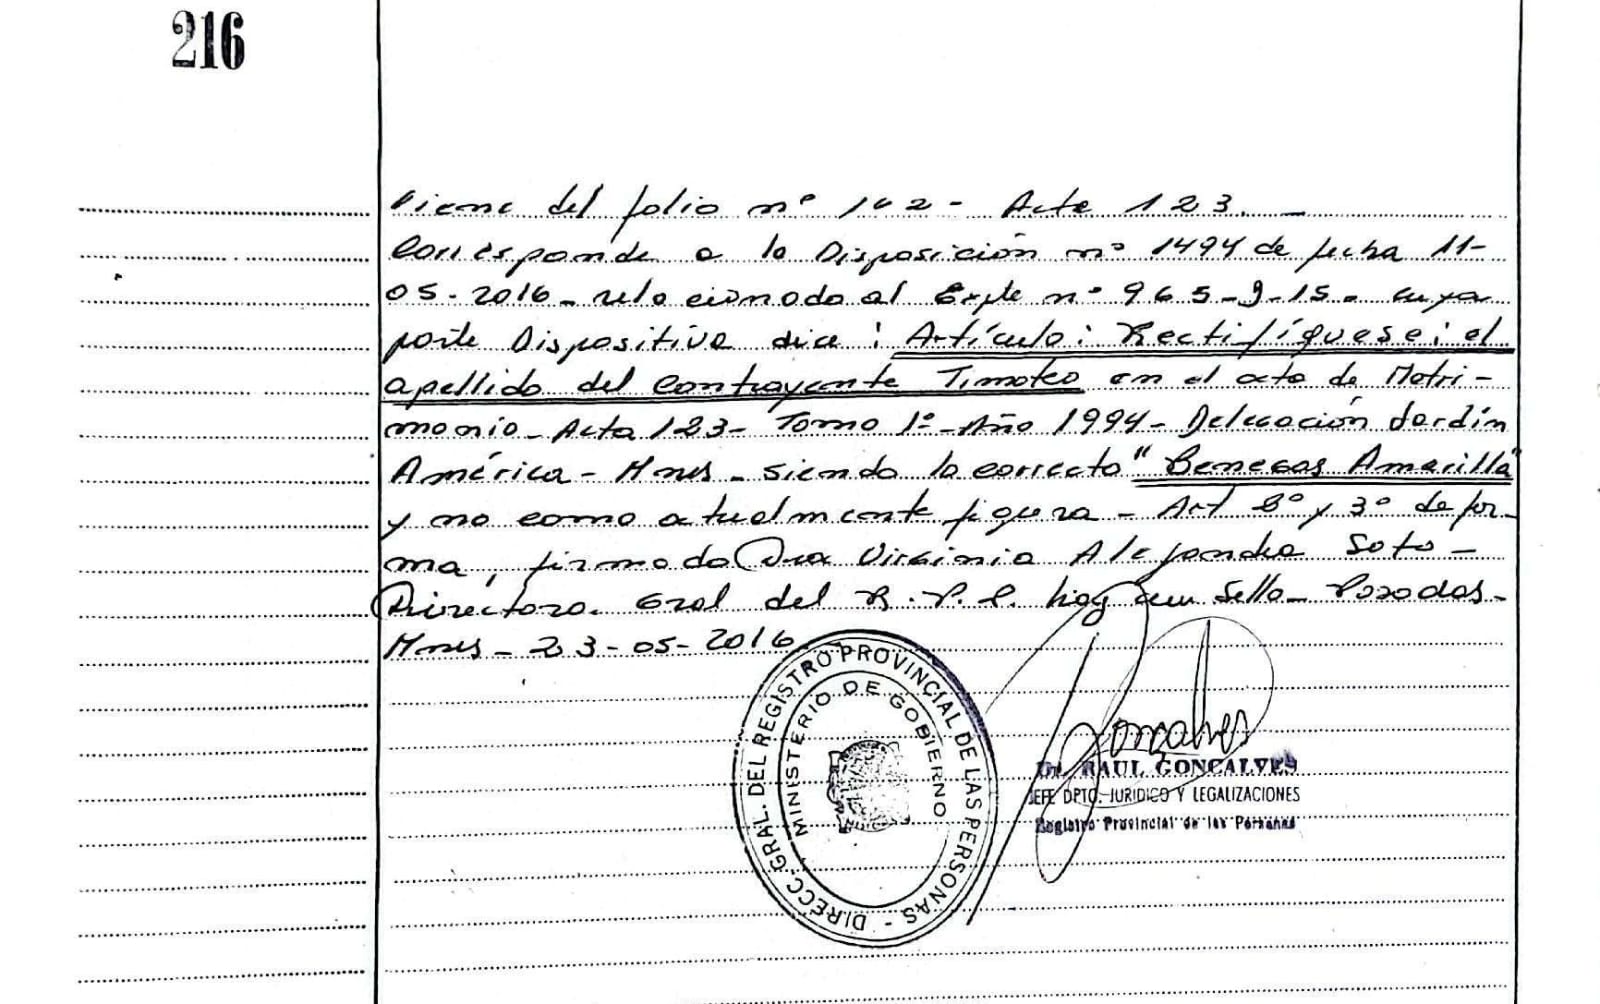 216
Viene del folio nº 102 - Acta 123. -
Corresponde a la Disposición nº 1494 de fecha 11-
05-2016 - relacionado al Expte nº 965-9-15 - cuya
parte Dispositiva dice : Artículo : Rectifíquese : el
apellido del Contrayente Timoteo en el acta de Matri-
monio - Acta 123 - Tomo 1º - Año 1994 - Delegación Jardín
América - Mnes - siendo lo correcto "Benegas Amarilla"
y no como actualmente figura - Art 2º y 3º de for-
ma, firmado Dra Virginia Alejandra Soto -
Directora Gral del R.P.P. hay un Sello - Posadas -
Mnes - 23-05-2016
DIRECC. GRAL. DEL REGISTRO PROVINCIAL DE LAS PERSONAS -
MINISTERIO DE GOBIERNO
Goncalves
Dr. RAUL GONCALVES
JEFE DPTO. JURIDICO Y LEGALIZACIONES
Registro Provincial de las Personas